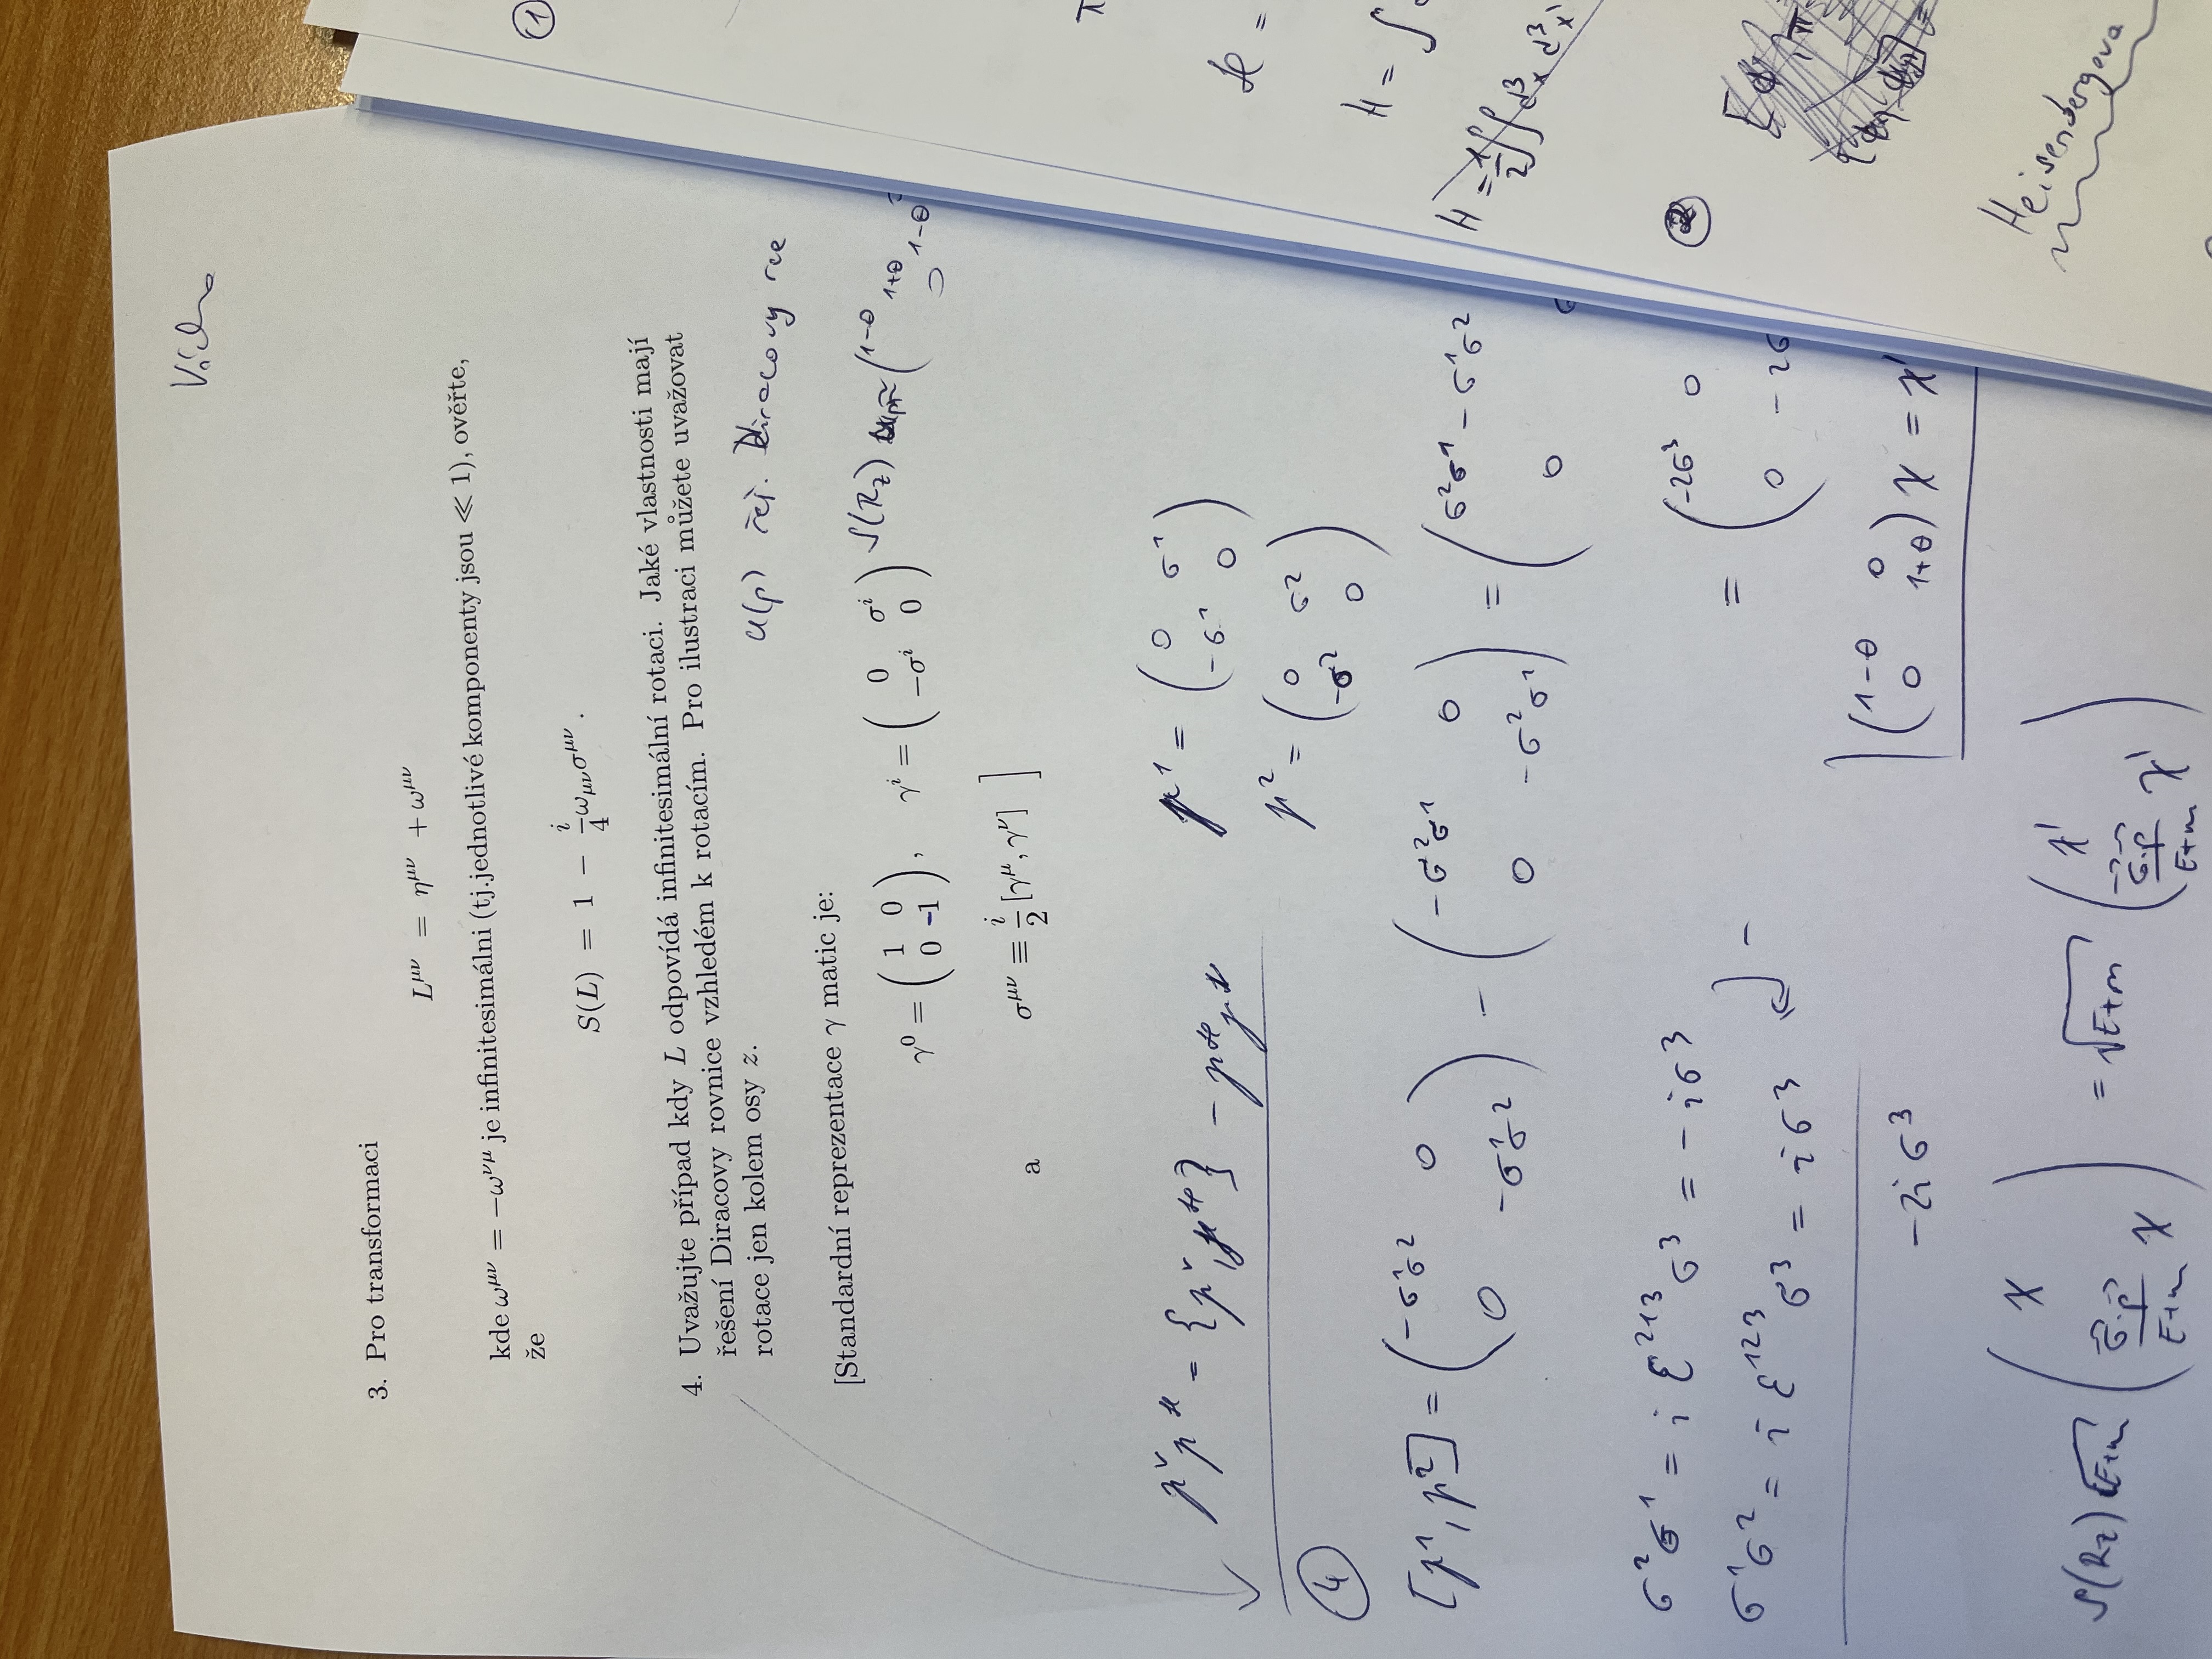 3. Pro transformaci
L^{μν} = η^{μν} + ω^{μν}
kde ω^{μν} = −ω^{νμ} je infinitesimálni (tj.jednotlivé komponenty jsou ≪ 1), ověřte,
že
S(L) = 1 − \frac{i}{4} ω_{μν}σ^{μν} .
4. Uvažujte případ kdy L odpovídá infinitesimální rotaci. Jaké vlastnosti mají
řešení Diracovy rovnice vzhledém k rotacím. Pro ilustraci můžete uvažovat
rotace jen kolem osy z.
u(p) řeš. Diracovy rce
[Standardní reprezentace γ matic je:
γ^0 = ( 1 0 ; 0 -1 ) , γ^i = ( 0 σ^i ; −σ^i 0 ) S(R_z) ( 1-θ 1+θ 1-θ
a σ^{μν} ≡ \frac{i}{2} [γ^μ, γ^ν] ]
γ^1 = ( 0 σ^1 ; -σ^1 0 )
γ^2 = ( 0 σ^2 ; -σ^2 0 )
④
[γ^1, γ^2] = ( -σ^1σ^2 0 ; 0 -σ^1σ^2 ) - ( -σ^2σ^1 0 ; 0 -σ^2σ^1 ) = ( σ^2σ^1 - σ^1σ^2 ; 0
σ^2σ^1 = i ε^{213} σ^3 = - iσ^3
σ^1σ^2 = i ε^{123} σ^3 = iσ^3 = ( -2σ^3 0 ; 0 -2σ
-2iσ^3
( 1-θ 0 ; 0 1+θ ) χ = χ'
S(R_z) √(E+m) ( χ ; \frac{σ·p}{E+m} χ ) = √(E+m) ( χ' ; \frac{σ·p}{E+m} χ' )
①
H = ∫
H = \frac{1}{2} ∫∫ d^3x d^3x'
②
Heisenbergova